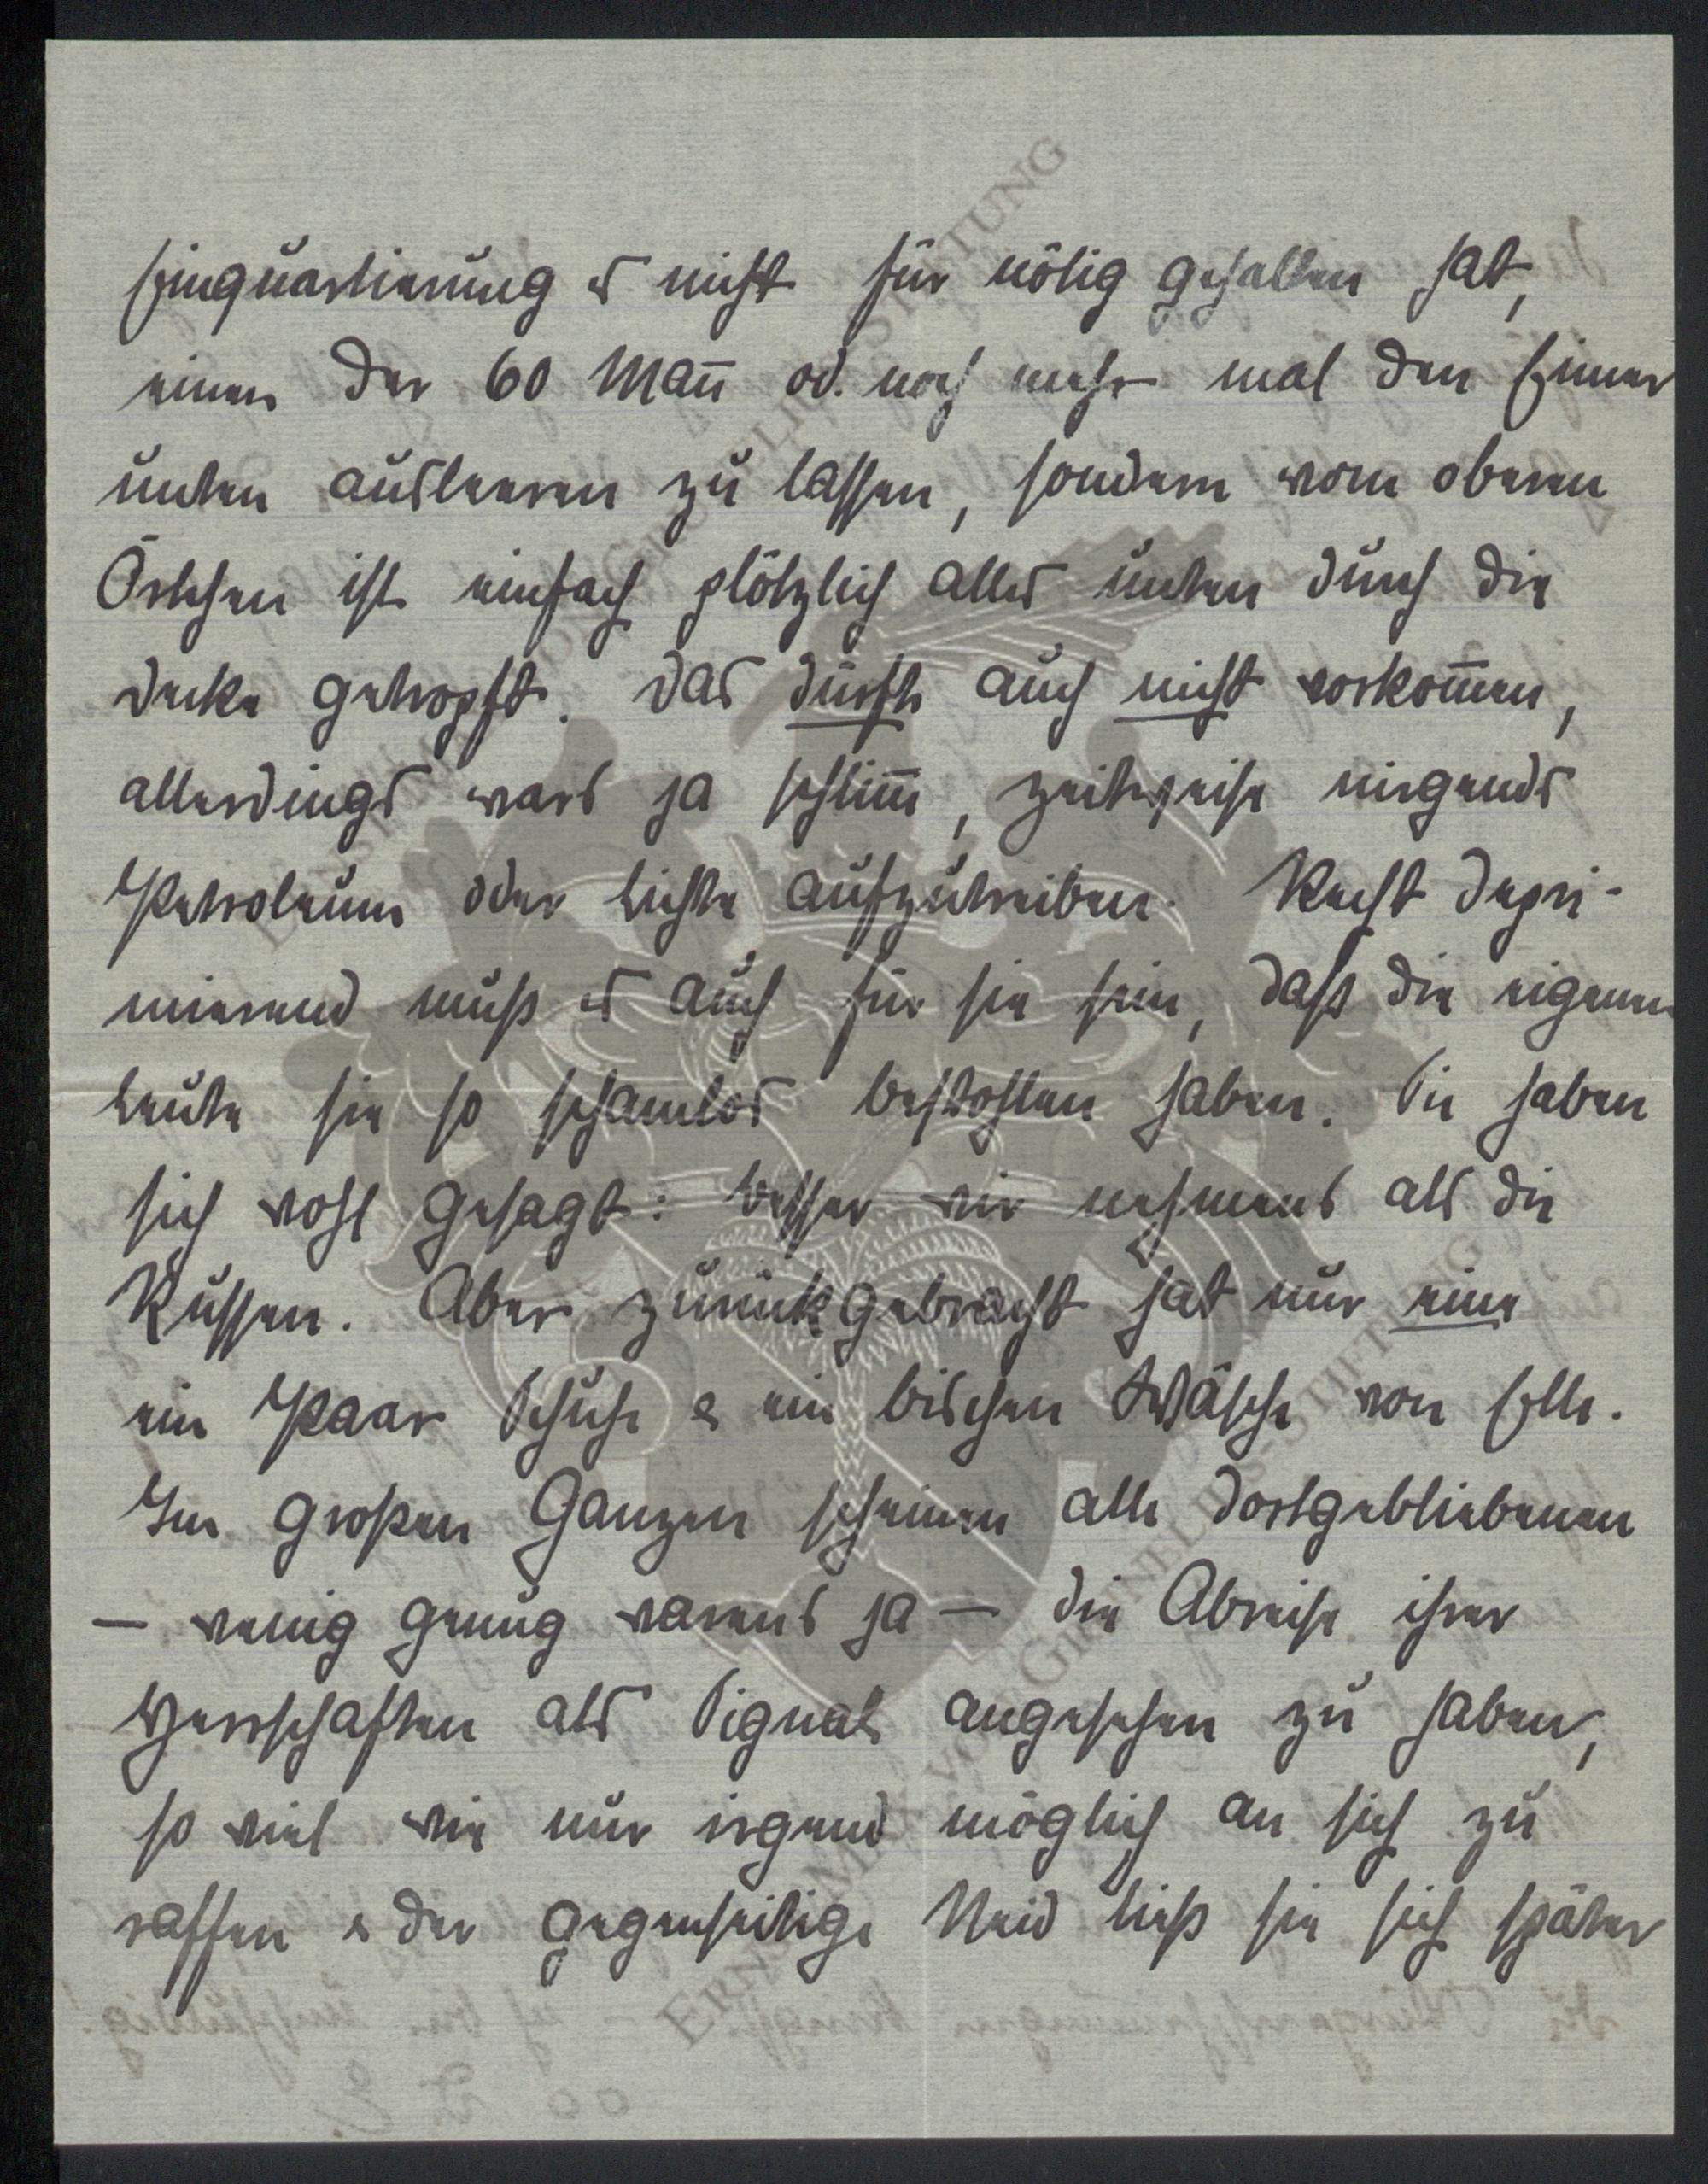 Einquartierung es nicht für nötig gehalten hat,
einen der 60 Man̅ od. noch mehr mal den Eimer
unten ausleeren zu lassen, sondern vom oberen
Örtchen ist einfach plötzlich alles unten durch die
Decke getropft. Das dürfte auch nicht vorkom̅en,
allerdings wars ja schlim̅, zeitweise nirgends
Petroleum oder Lichte aufzutreiben. Recht depri-
mierend muß es auch für sie sein, daß die eigenen
Leute sie so schamlos bestohlen haben. Sie haben
sich wohl gesagt: besser wir nehmens als die
Russen. Aber zurückgebracht hat nur eine
ein Paar Schuhe & ein bischen Wäsche von Elle.
Im großen Ganzen scheinen alle dortgebliebenen
— wenig genug warens ja — die Abreise ihrer
Herrschaften als Signal angesehen zu haben,
so viel wie nur irgend möglich an sich zu
raffen & der gegenseitige Neid ließ sie sich später